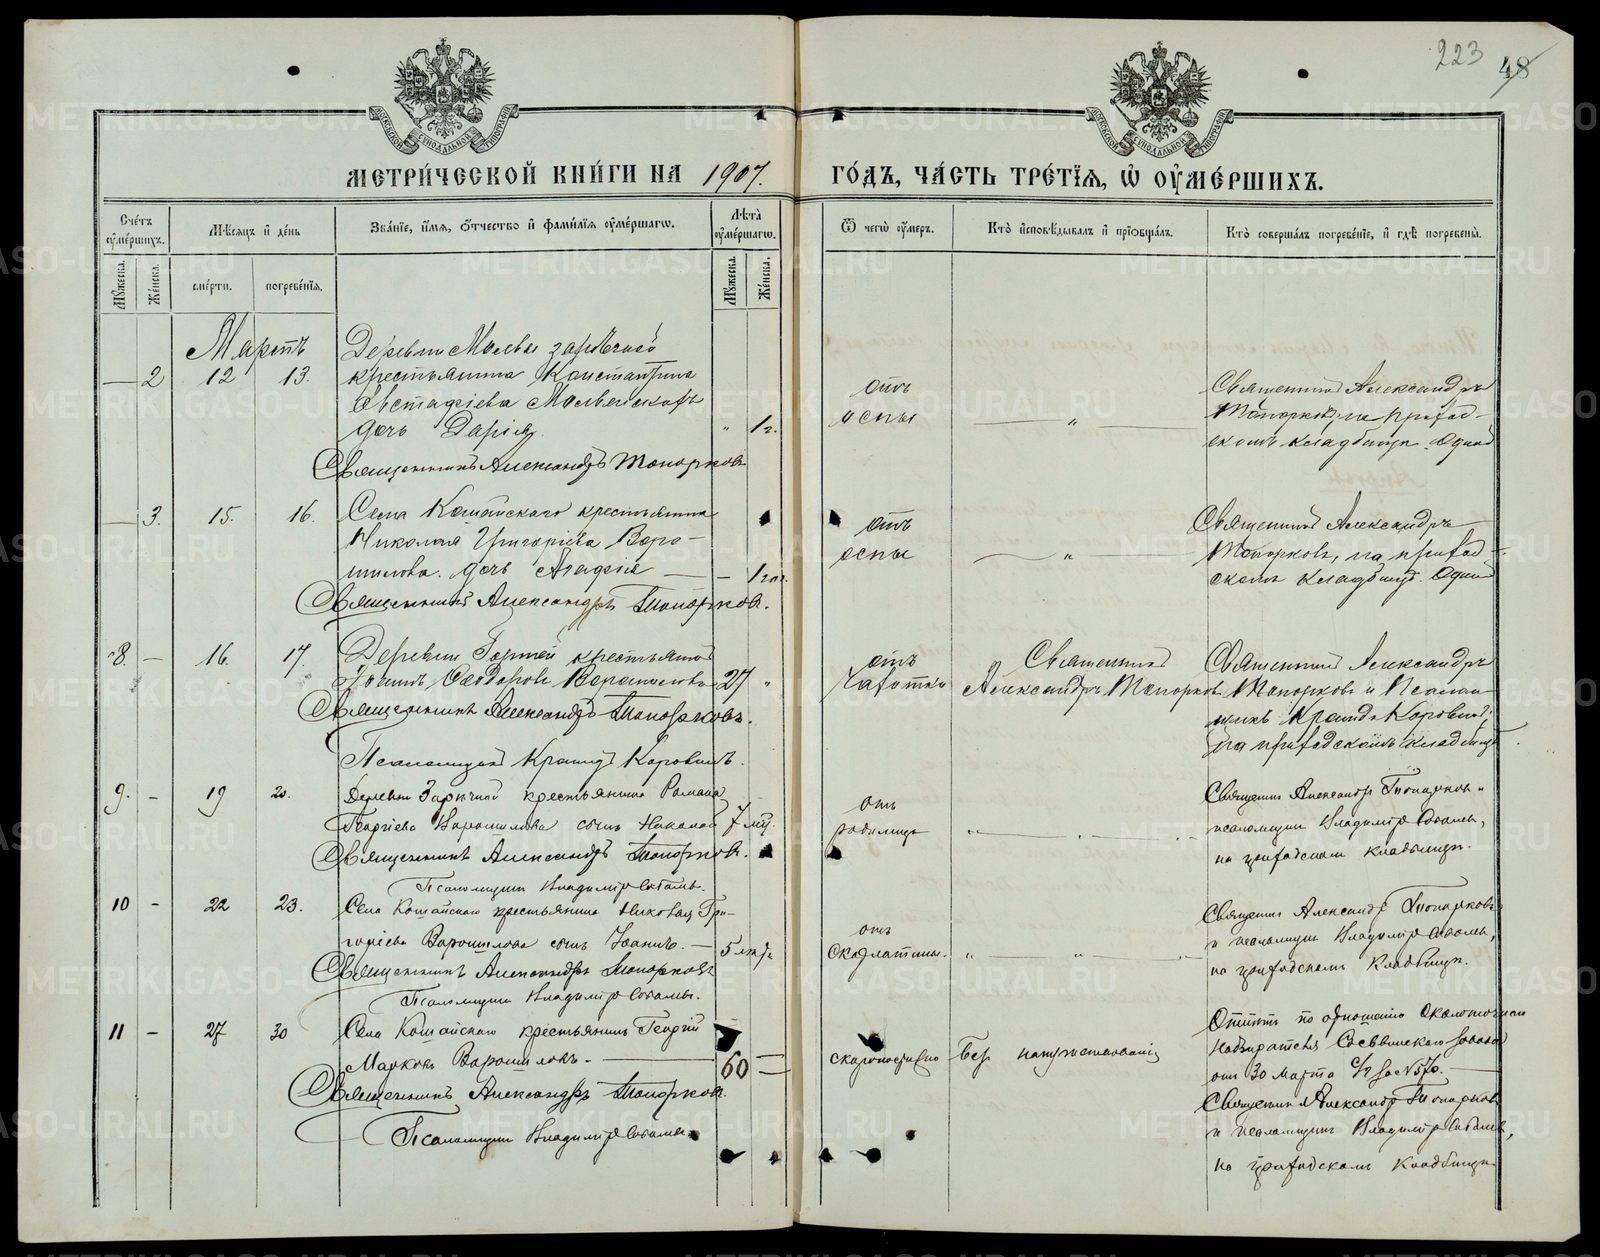 223
48
МЕТРИ́ЧЕСКОЙ КНИ́ГИ НА 1907.
ГО́ДЪ, ЧА́СТЬ ТРЕ́ТЇѦ, Ѽ ОУ҆МЕ́РШИХЪ.
Сче́тъ оу҆ме́ршихъ.
Мѣ́сѧцъ и҆ де́нь
Зва́нїе, и҆́мѧ, о҆́тчество и҆ фами́лїѧ оу҆ме́ршагѡ.
Лѣ́та оу҆ме́ршагѡ.
Ѿ чегѡ̀ оу҆́меръ.
Кто̀ и҆сповѣ́дывалъ и҆ прїѡбща́лъ.
Кто̀ соверша́лъ погребе́нїе, и҆ гдѣ̀ погребены̀.
Мꙋ́жеска.
Же́нска.
сме́рти.
погребе́нїѧ.
Мꙋ́жеска.
Же́нска.
Мартъ
Деревни Молвы заречной
— 2 12 13. крестьянина Константина
Евстафіева
дочь Дарія. " 1 г.
Священникъ Александръ Топорковъ
отъ
оспы
— " —
Священникъ Александръ
Топорковъ, на приход-
скомъ кладбище. Одинъ
— 3. 15. 16. Села Кошайскаго крестьянина
Николая Григорьева Воро-
шилова. дочь Агафія — — 1 год.
Священникъ Александръ Топорковъ.
отъ
оспы
— " —
Священникъ Александръ
Топорковъ, на приход-
скомъ кладбище. Одинъ
8. — 16. 17. Деревни крестьянинъ
Ѳеодоровъ Ворошиловъ 27 "
Священникъ Александръ Топорковъ.
Псаломщикъ Кронидъ Коровинъ.
отъ
чахотки
Священникъ
Александръ Топорковъ
Священникъ Александръ
Топорковъ и Псалом-
щикъ Кронидъ Коровинъ,
на приходскомъ кладбище.
9. — 19 20. Деревни Заречной крестьянина Романа
Георгіева Ворошилова сынъ Николай 7 мц.
Священникъ Александръ Топорковъ.
Псаломщикъ Владиміръ
отъ
родимца
Священникъ Александръ Топорковъ и
псаломщикъ Владиміръ
на приходскомъ кладбище.
10 — 22 23. Села Кошайскаго крестьянина Николая Гри-
горіева Ворошилова сынъ Іоаннъ. — 5
Священникъ Александръ Топорковъ
Псаломщикъ Владиміръ
отъ
скарлатины.
Священникъ Александръ Топорковъ
и псаломщикъ Владиміръ
на приходскомъ кладбище.
11 — 27 30 Села Кошайскаго крестьянинъ Георгій
Марковъ Ворошиловъ. — 60 —
Священникъ Александръ Топорковъ.
Псаломщикъ Владиміръ
скоропостижно
Без напутствованія
Отпѣтъ по отношенію Околоточнаго
Надзирателя Сосьвинскаго завода
отъ 30 Марта с/г за № 570. —
Священникъ Александръ Топорковъ
и псаломщикъ Владиміръ
на приходскомъ кладбище.
METRIKI.GASO-URAL.RU